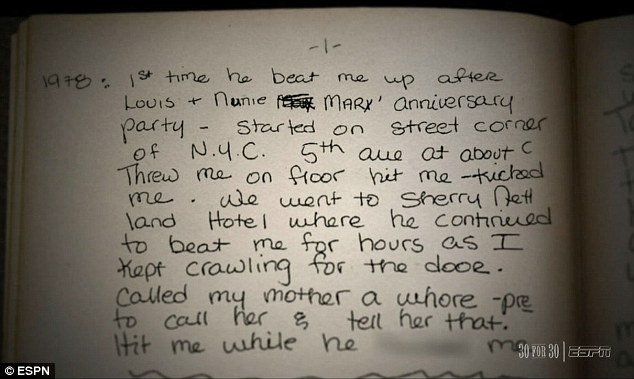 -1-
1978: 1st time he beat me up after
Louis + Nunie MARX' anniversary
party - started on street corner
of N.Y.C. 5th ave at about C
Threw me on floor hit me - kicked
me. We went to Sherry Neth
land Hotel where he continued
to beat me for hours as I
kept crawling for the door.
Called my mother a whore - pre
to call her & tell her that.
Hit me while he me
30 FOR 30 | ESPN
© ESPN